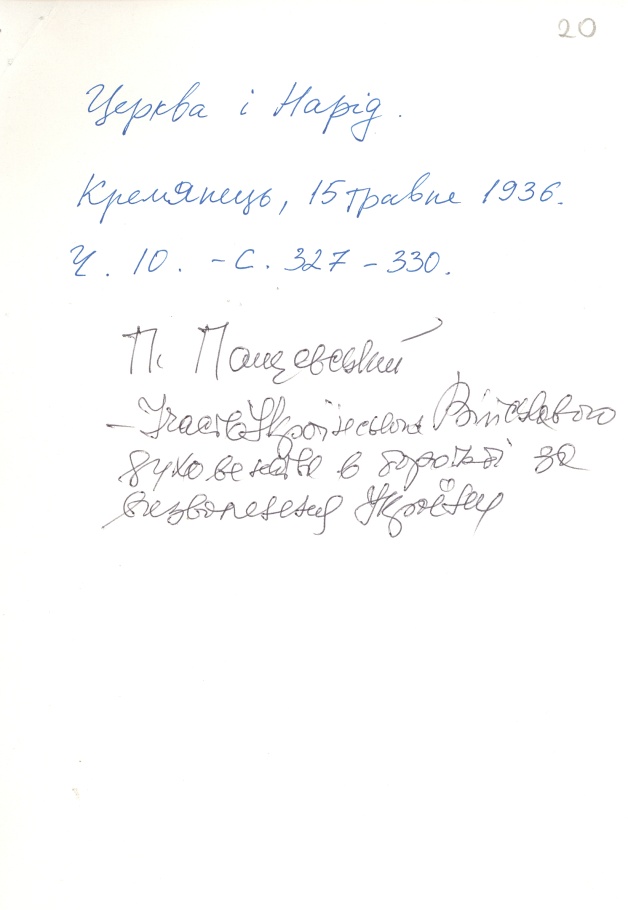 20
Церква і Нарід.
Кремянець, 15 травня 1936.
Ч. 10. - С. 327 - 330.
П. Пащевський
- Участь Українського Військового
духовенства в боротьбі за
визволення України